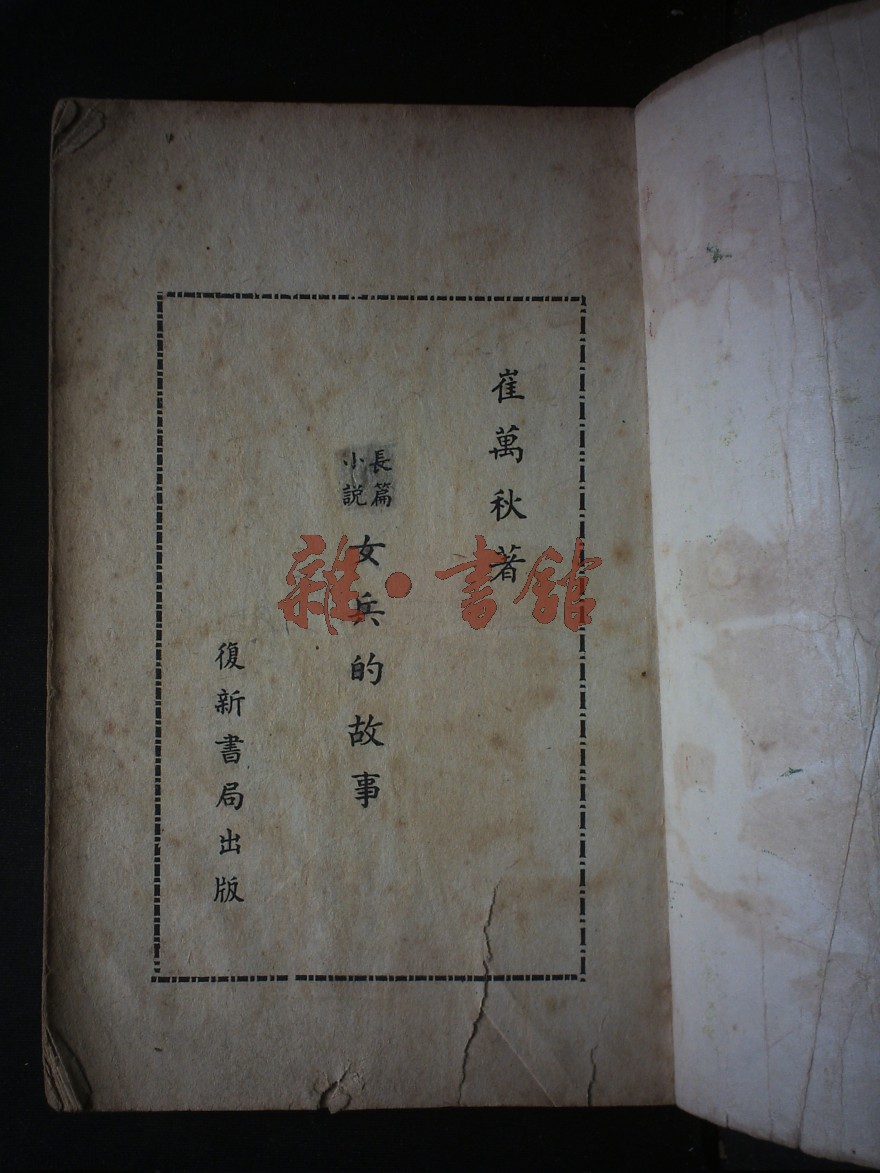 崔萬秋著
長篇
小説
女兵的故事
復新書局出版
雜·書館